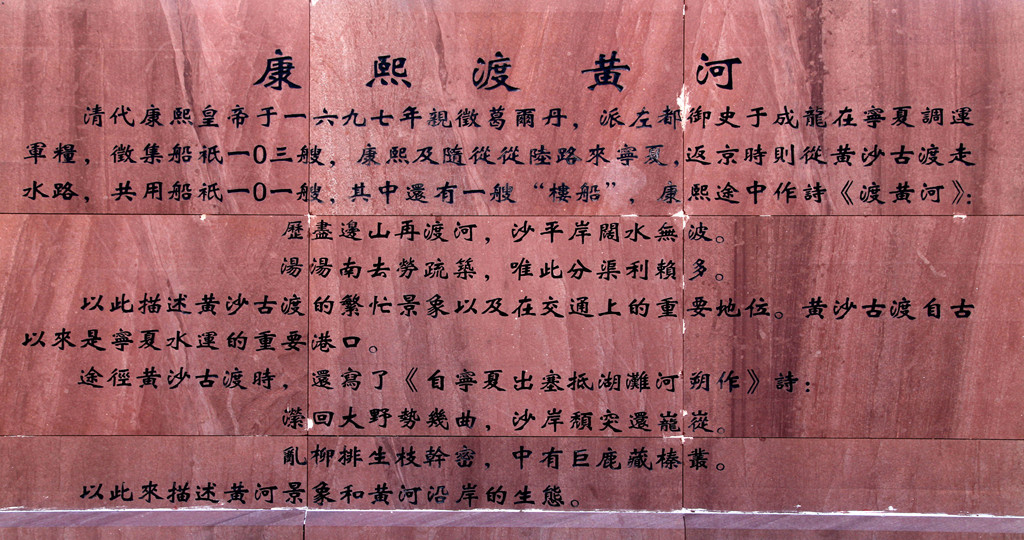 康熙渡黄河
清代康熙皇帝于一六九七年親徵葛爾丹，派左都御史于成龍在寧夏調運
軍糧，徵集船衹一0三艘，康熙及隨從從陸路來寧夏，返京時則從黄沙古渡走
水路，共用船衹一0一艘，其中還有一艘“樓船”，康熙途中作詩《渡黄河》：
歷盡邊山再渡河，沙平岸闊水無波。
湯湯南去勞疏築，唯此分渠利賴多。
以此描述黄沙古渡的繁忙景象以及在交通上的重要地位。黄沙古渡自古
以來是寧夏水運的重要港口。
途徑黄沙古渡時，還寫了《自寧夏出塞抵湖灘河朔作》詩：
瀠回大野勢幾曲，沙岸頹突還巃嵸。
亂柳排生枝幹密，中有巨鹿藏榛叢。
以此來描述黄河景象和黄河沿岸的生態。